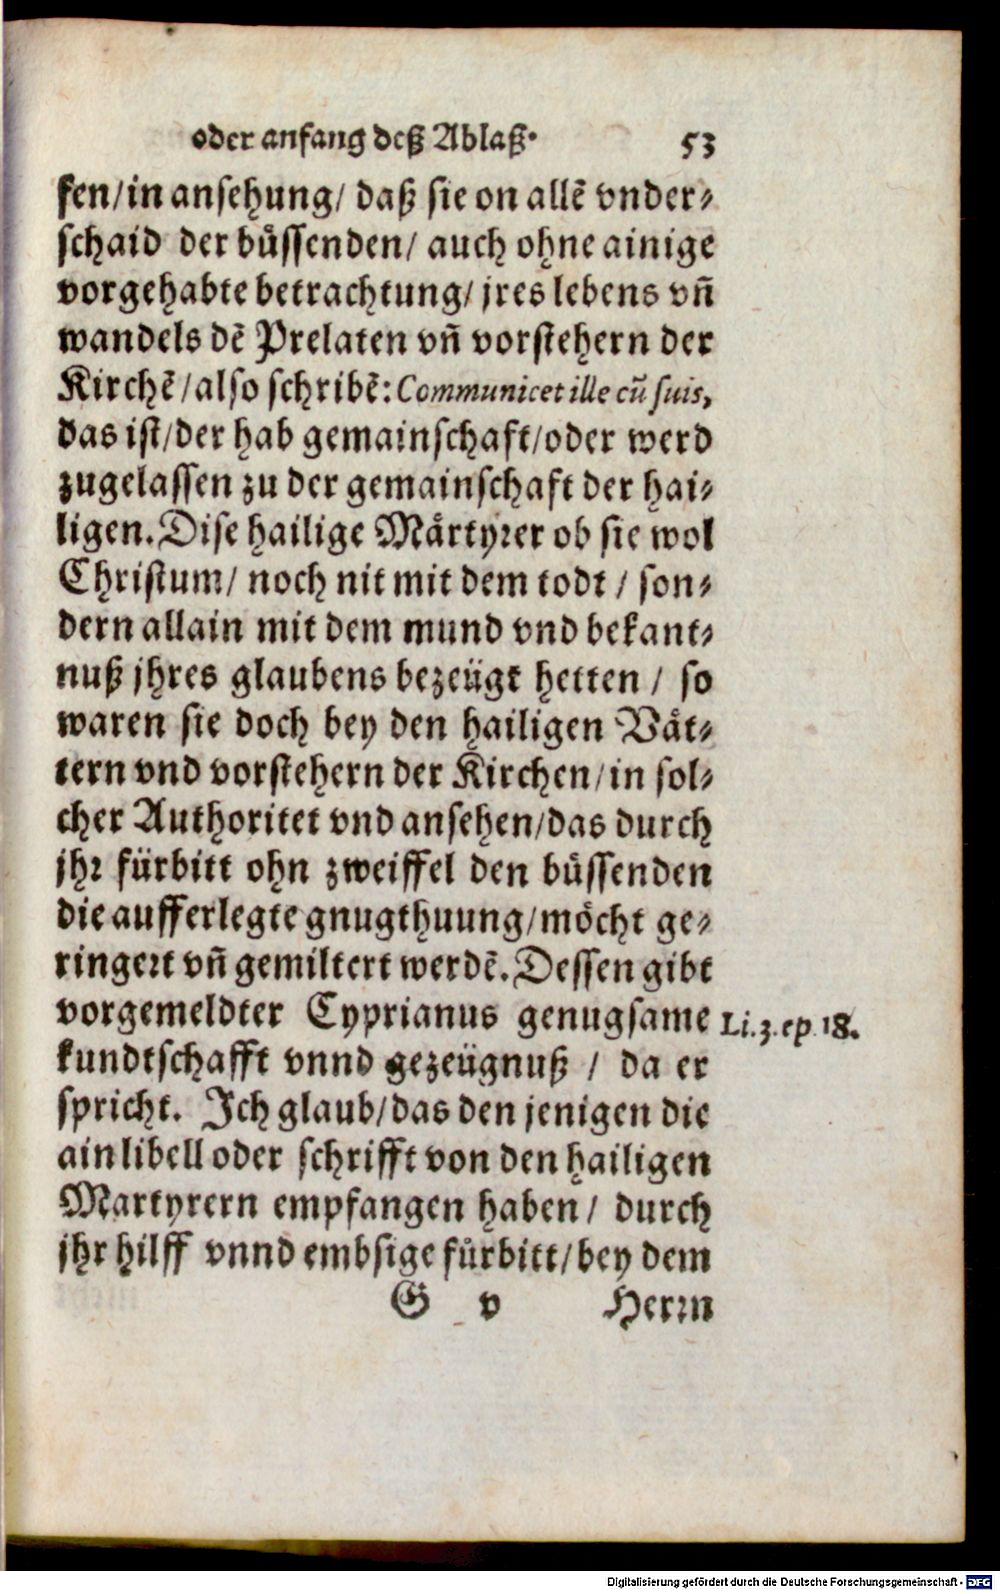 oder anfang deß Ablaß. 53
fen/in ansehung/ daß sie on allẽ vnder-
schaid der büssenden/ auch ohne ainige
vorgehabte betrachtung/ jres lebens vñ
wandels dẽ Prelaten vñ vorstehern der
Kirchẽ/also schribẽ: Communicet ille cũ suis,
das ist/der hab gemainschaft/oder werd
zugelassen zu der gemainschaft der hai-
ligen. Dise hailige Märtyrer ob sie wol
Christum/ noch nit mit dem todt / son-
dern allain mit dem mund vnd bekant-
nuß jhres glaubens bezeügt hetten / so
waren sie doch bey den hailigen Vät-
tern vnd vorstehern der Kirchen/in sol-
cher Authoritet vnd ansehen/das durch
jhr fürbitt ohn zweiffel den büssenden
die aufferlegte gnugthuung/möcht ge-
ringert vñ gemiltert werdẽ. Dessen gibt
vorgemeldter Cyprianus genugsame Li.3.ep.18.
kundtschafft vnnd gezeügnuß / da er
spricht. Ich glaub/das den jenigen die
ain libell oder schrifft von den hailigen
Martyrern empfangen haben/ durch
jhr hilff vnnd embsige fürbitt/bey dem
G v Herrn
Digitalisierung gefördert durch die Deutsche Forschungsgemeinschaft - DFG